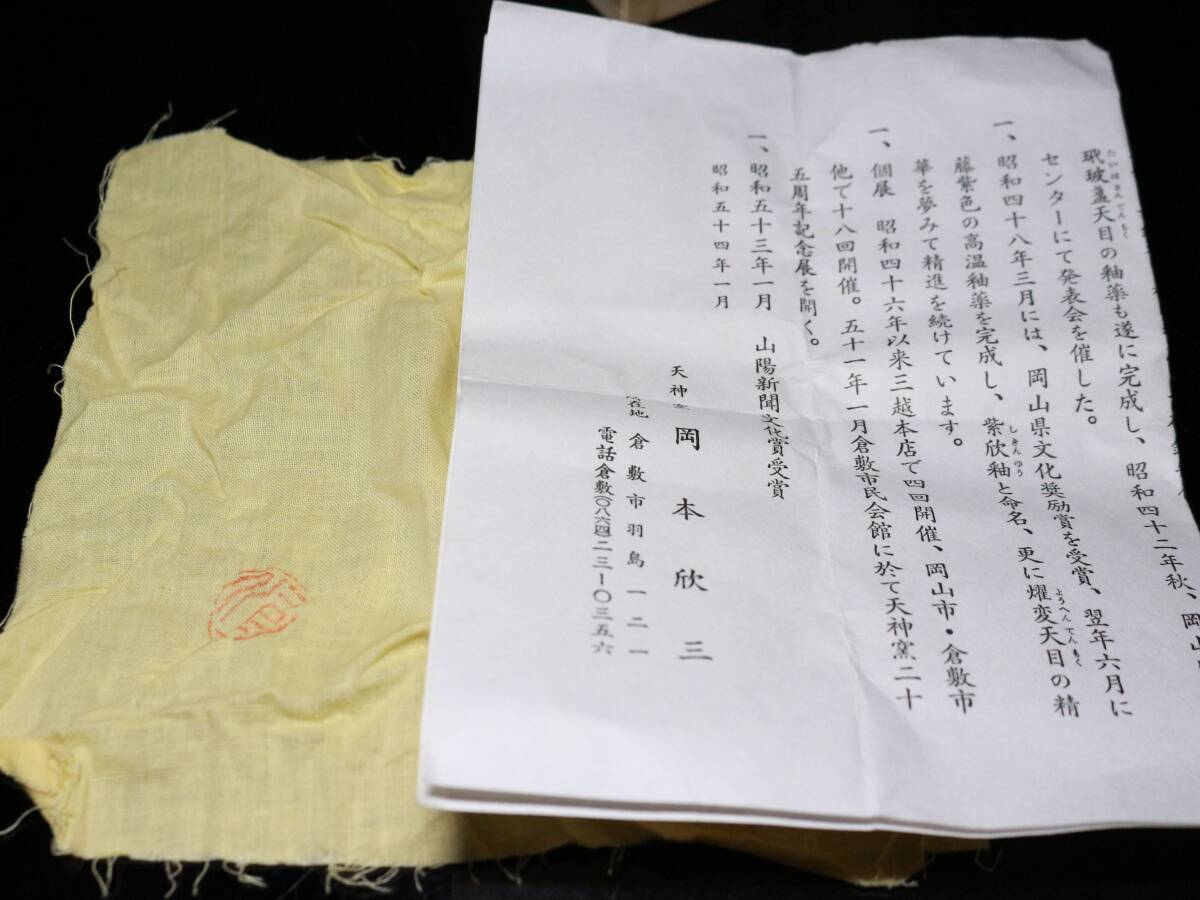 玳玻盞天目の釉薬も遂に完成し、昭和四十二年秋、岡山
たいはさんてんもく
センターにて発表会を催した。
一、昭和四十八年三月には、岡山県文化奨励賞を受賞、翌年六月に
藤紫色の高温釉薬を完成し、紫欣釉と命名、更に燿変天目の精
しきんゆう
ようへんてんもく
華を夢みて精進を続けています。
一、個展 昭和四十六年以来三越本店で四回開催、岡山市・倉敷市
他で十八回開催。五十一年一月倉敷市民会館に於て天神窯二十
五周年記念展を開く。
一、昭和五十三年一月 山陽新聞文化賞受賞
昭和五十四年一月
天神窯 岡本欣三
在地 倉敷市羽島一二一
電話倉敷(〇八六四)二三ー〇三五六